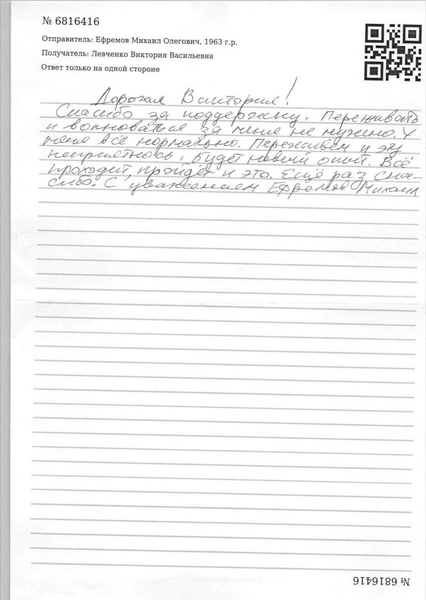 № 6816416
Отправитель: Ефремов Михаил Олегович, 1963 г.р.
Получатель: Левченко Виктория Васильевна
Ответ только на одной стороне
Дорогая Виктория!
Спасибо за поддержку. Переживать
и волноваться за меня не нужно. У
меня всё нормально. Переживём и эту
неприятность, будет новый опыт. Всё
проходит, пройдёт и это. Ещё раз спа-
сибо. С уважением Ефремов Михаил
№ 6816416